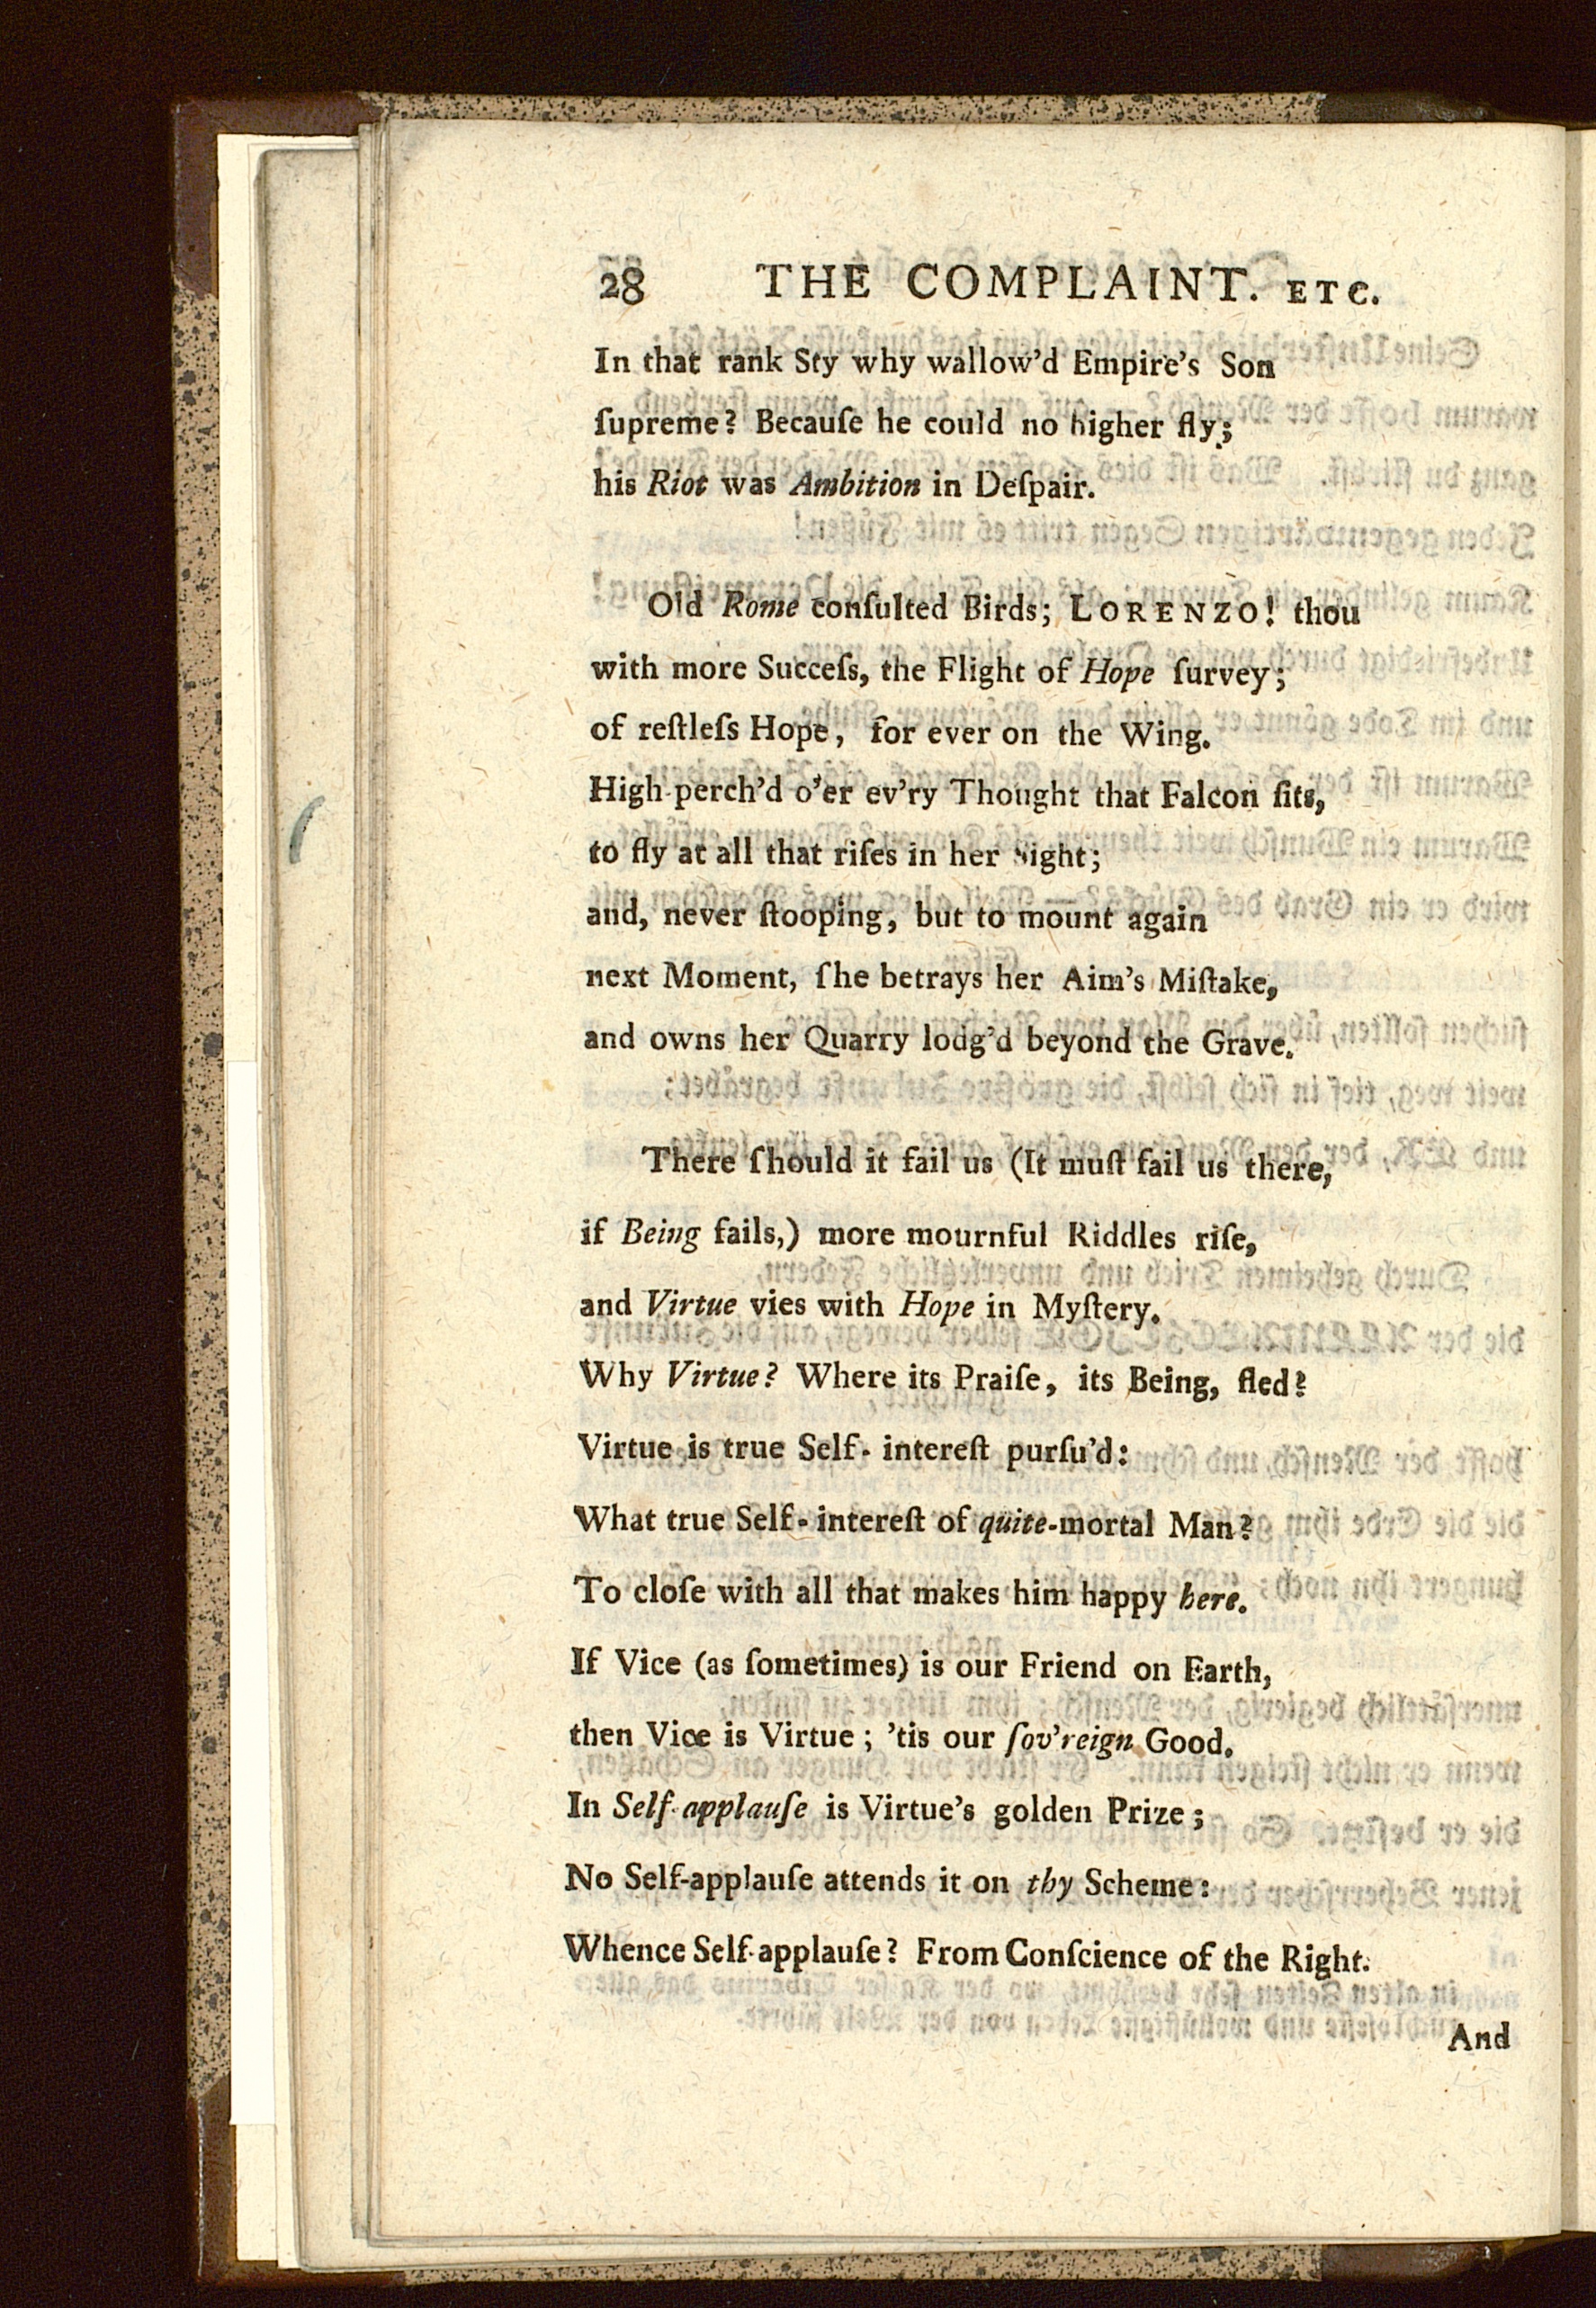 28 THE COMPLAINT. ETC.
In that rank Sty why wallow'd Empire's Son
ſupreme? Becauſe he could no higher fly;
his Riot was Ambition in Deſpair.
Old Rome conſulted Birds; LORENZO! thou
with more Succeſs, the Flight of Hope ſurvey;
of reſtleſs Hope, for ever on the Wing.
High-perch'd o'er ev'ry Thought that Falcon ſits,
to fly at all that riſes in her Sight;
and, never ſtooping, but to mount again
next Moment, ſhe betrays her Aim's Miſtake,
and owns her Quarry lodg'd beyond the Grave.
There ſhould it fail us (It muſt fail us there,
if Being fails,) more mournful Riddles riſe,
and Virtue vies with Hope in Myſtery.
Why Virtue? Where its Praiſe, its Being, fled?
Virtue is true Self-intereſt purſu'd:
What true Self-intereſt of quite-mortal Man?
To cloſe with all that makes him happy here.
If Vice (as ſometimes) is our Friend on Earth,
then Vice is Virtue; 'tis our ſov'reign Good.
In Self-applauſe is Virtue's golden Prize;
No Self-applauſe attends it on thy Scheme:
Whence Self-applauſe? From Conſcience of the Right.
And